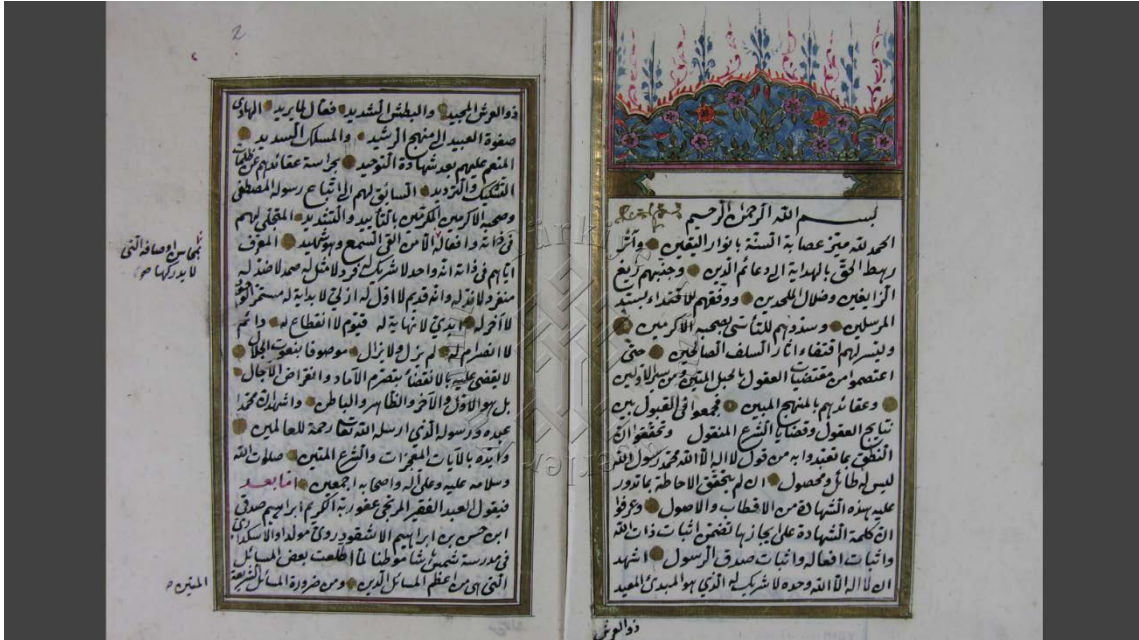 بسم الله الرحمن الرحيم
الحمد لله ميّز عصابة السنة بانوار اليقين وآثر
رهط الحق بالهداية الى دعائم الدين وجنبهم زيغ
الزايغين وضلال الملحدين ووفقهم للاقتداء بسيد
المرسلين وسددهم للتأسى بصحبه الاكرمين
ويسر لهم اقتفاء اثار السلف الصالحين حتى
اعتصموا من مقتضيات العقول بالحبل المتين ومن سير الاولين
وعقائدهم بالمنهج المبين فجمعوا فى القبول بين
نتايج العقول وقضايا الشرع المنقول وتحققوا ان
النطق بما تعبدوا به من قول لا اله الا الله محمد رسول الله
ليس له طائل ومحصول ان لم يتحقق الاحاطة بما تدور
عليه هذه الشهادة من الاقطاب والاصول وعرفوا
ان كلمة الشهادة على ايجازها تضمن اثبات ذات الله
واثبات افعاله واثبات صدق الرسول اشهد
ان لا اله الا الله وحده لا شريك له الذى هو المبدئ المعيد
ذو العرش
2
ذو العرش المجيد والبطش الشديد فعال لما يريد الهادى
صفوة العبيد الى منهج الرشيد والمسلك السديد
المنعم عليهم بعد شهادة التوحيد بحراسة عقائدهم عن ظلمات
التشكيك والترديد السائق لهم الى اتباع رسوله المصطفى
وصحبه الاكرمين المكرمين بالتأييد والتشديد المتجلى لهم
فى ذاته وافعاله الا من القى السمع وهو شهيد المعرف
اياهم فى ذاته انه واحد لا شريك له فرد لا مثل له صمد لا ضد له
منفرد لا ند له وانه قديم لا اول له ازلى لا بداية له مستمر الوجود
لا آخر له ابدى لا نهاية له قيوم لا انقطاع له دائم
لا انصرام له لم يزل ولا يزال موصوفا بنعوت الجلال
لا يقضى عليه بالانقضاء بتصرم الآماد وانقراض الآجال
بل هو الاول والآخر والظاهر والباطن واشهد ان محمدا
عبده ورسوله الذى ارسله الله تعالى رحمة للعالمين
وايده بالآيات المعجزات والشرع المتين صلوات الله
وسلامه عليه وعلى آله واصحابه اجمعين اما بعد
فيقول العبد الفقير المرتجى عفو ربه الكريم ابراهيم صدقى
ابن حسن بن ابراهيم مولدا والاسكدارى
فى مدرسة موطنا لما اطلعت بعض المسائل
التى هى من اعظم المسائل الدين ومن ضرورة المسائل الشريعة
بمحاسن اوصافه التى
لا يدركها
المتين